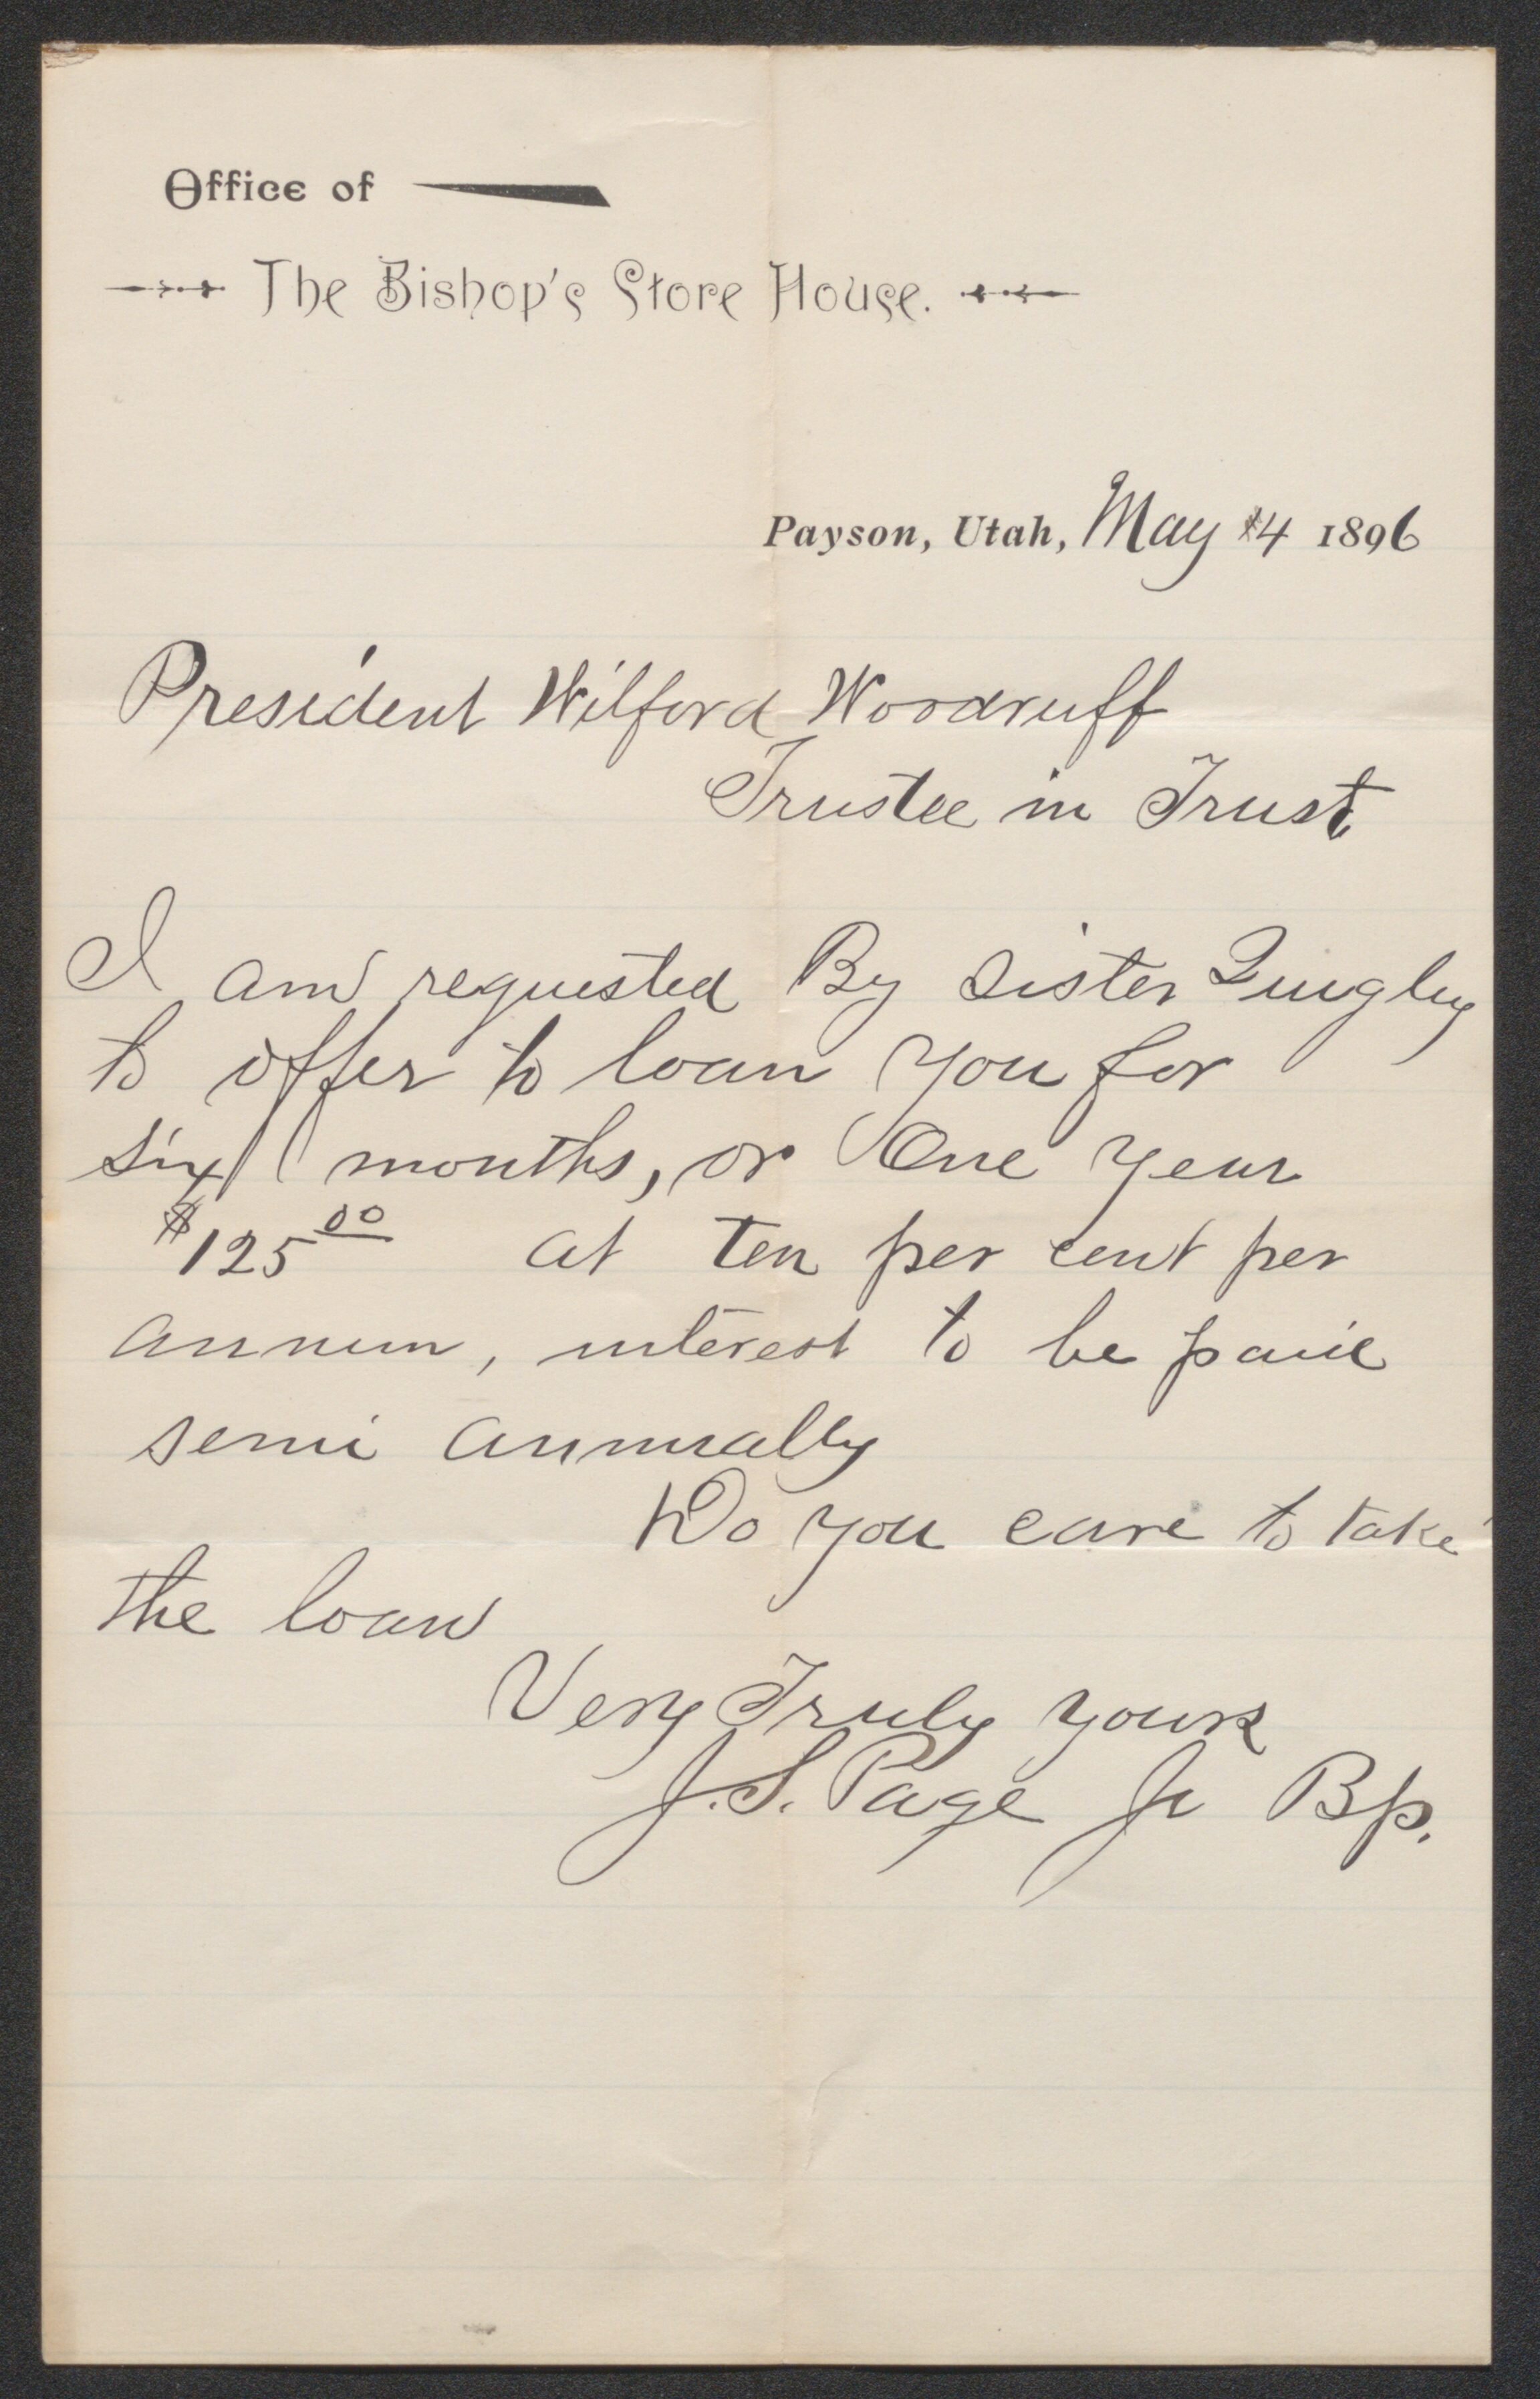 Office of
The Bishop's Store House.
Payson, Utah, May 4 1896
President Wilford Woodruff
Trustee in Trust
I am requested By Sister Quigley
to offer to loan you for
six months, or One year
$125 00 at ten per cent per
annum, interest to be paid
semi annually
Do you care to take
the loan
Very Truly yours
J. S. Page Jr Bp.